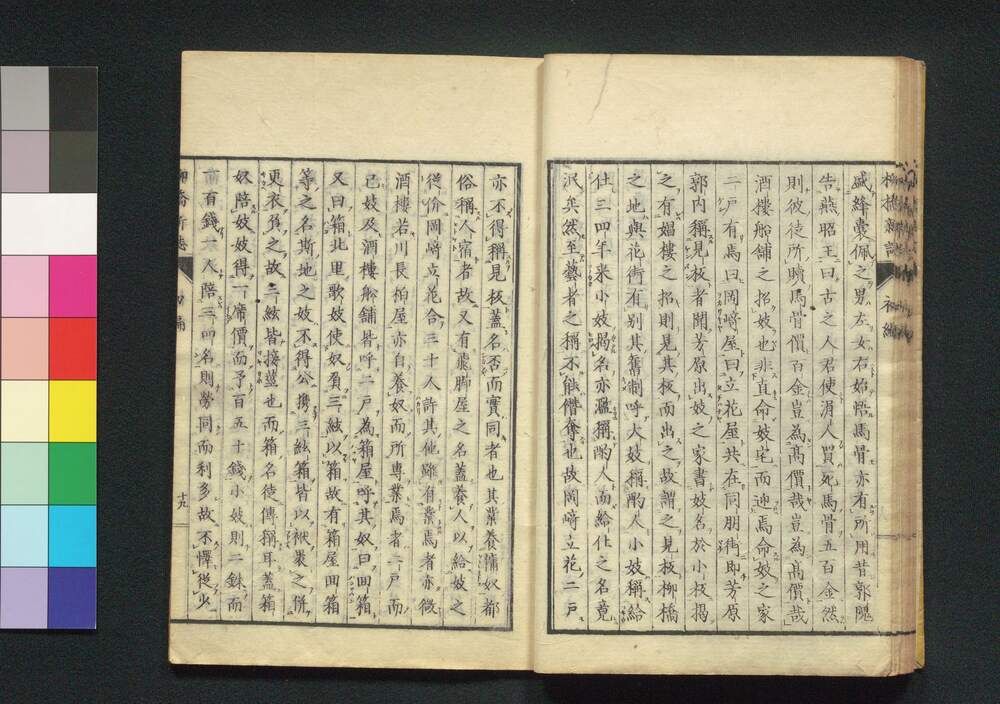 盛絳囊佩之男左女右始悟馬骨亦有所用昔郭隗
告燕昭王曰古之人君使涓人買死馬骨五百金然
則彼徒所購馬骨價百金豈為高價哉豈為高價哉
酒樓船舖之招妓也非直命妓宅而迎焉命妓之家
二戶有焉曰岡﨑屋曰立花屋共在同朋街即芳原
郭內稱見板者聞芳原出妓之家書妓名於小板揭
之有娼樓之招則見其板而出之故謂之見板柳橋
之地與花街有別其舊制呼大妓稱酌人小妓稱給
仕三四年來小妓揭名亦濫稱酌人而給仕之名竟
泯矣然至藝者之稱不能僭奪也故岡﨑立花二戶
亦不得稱見板蓋名否而實同者也其業養傭奴都
俗稱人宿者故又有脚屋之名蓋養人以給妓之
從价岡﨑立花合三十人許其他雖有業焉者亦微
酒樓若川長柏屋亦自養奴而所專業焉者二戶而
已妓及酒樓船舖皆呼二戶為箱屋呼其奴曰囬箱
又曰箱北里歌妓使奴負三絃以箱故有箱屋囬箱
等之名斯地之妓不得公携三絃箱皆以袱裹之併
更衣負之故三絃皆接莖也而箱名徒傳稱耳蓋箱
奴陪妓妓得一席價而予百五十錢小妓則二銖而
百錢一人陪三四名則勞同而利多故不懌從少
柳橋新誌
初編
十九